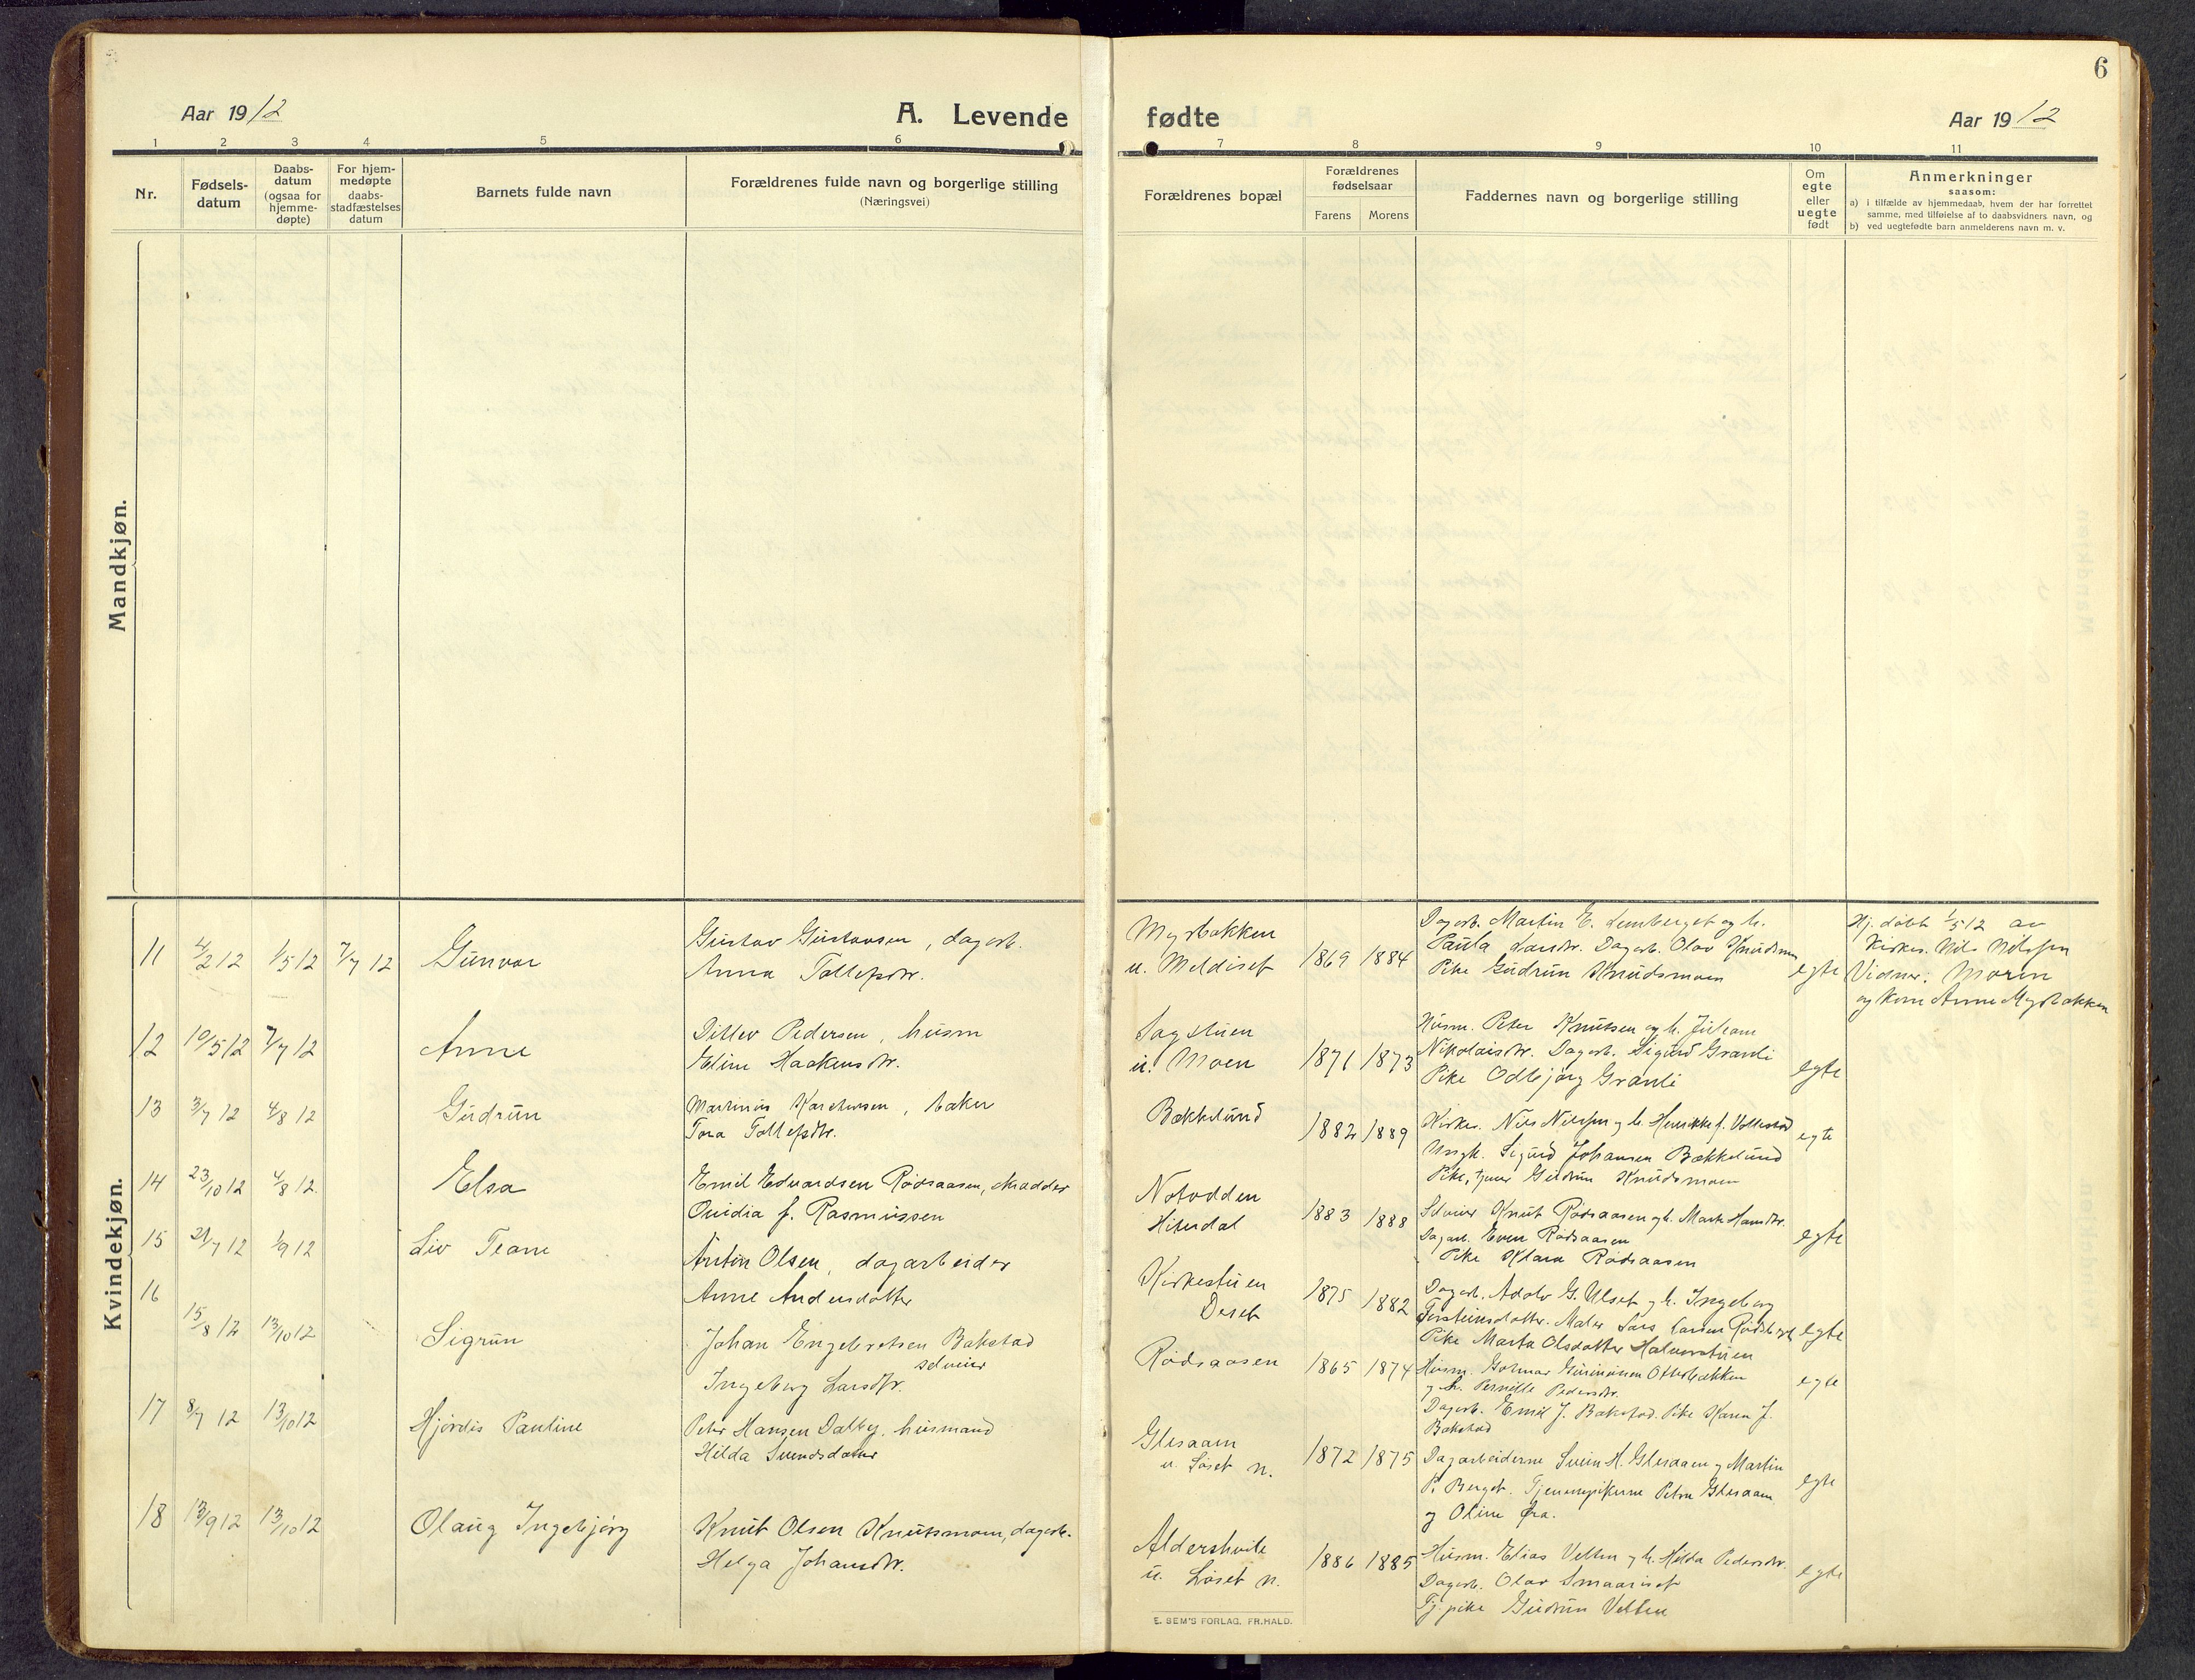 6
Aar 1912
A. Levende fødte
Aar 1912
1 2 3 4 5 6 7 8 9 10 11
Nr.
Fødsels-
datum
Daabs-
datum
(ogsaa for
hjemme-
døpte)
For hjem-
medøpte
daabs-
stadfæstelses
datum
Barnets fulde navn
Forældrenes fulde navn og borgerlige stilling
(Næringsvei)
Forældrenes bopæl
Forældrenes
fødselsaar
Farens Morens
Faddernes navn og borgerlige stilling
Om
egte
eller
uegte
født
Anmerkninger
saasom:
a) i tilfælde av hjemmedaab, hvem der har forrettet
samme, med tilføielse af to daabsvidners navn, og
b) ved uegtefødte barn anmelderens navn m. v.
Mandkjøn.
Kvindekjøn.
11 4/2 12 1/5 12 7/7 12 Gunvor
Gustav Gustavsen, dagarb.
Anna Tollefsdtr.
Myrbakken
u. Meldiset
1869 1884
Dagarb. Martin E. Lemberget og h.
Paula Larsdtr. Dagarb. Olav Knudsmoen
Pike Gudrun Knudsmoen
egte
Hj. døbt 1/5 12 av
Kirkes. Nils Nilssen
Vidner: Moren
og Kone Anne Myrbakken
12 10/5 12 7/7 12 Anne
Ditlev Pedersen, husm
Eline Haakensdtr.
Sagstuen
u. Moen
1871 1873
Husm. Peter Knutsen og h. Juliane
Nikolaisdtr. Dagarb. Sigurd Granli
Pike Odbjørg Granli
egte
13 3/7 12 4/8 12 Gudrun
Martinius Karstensen, baker
Tora Tollefsdtr.
Bækkelund
1882 1889
Kirkes. Nils Nilssen og h. Henrikke f. Vollestad
Ungk. Sigurd Johansen Bækkelund
Pike, tjener Gudrun Knudsmoen
egte
14 23/10 12 4/8 12 Elsa
Emil Edvardsen Rødsaasen, skrædder
Ovidia f. Rasmussen
Notodden
Hiterdal
1883 1888
Selveier Knut Rødsaasen og h. Marte Hansdtr.
Dagarb. Even Rødsaasen
Pike Klara Rødsaasen
egte
15 21/7 12 1/9 12 Liv
Anton Olsen, dagarbeider
Anne Andersdatter
Kirkestuen
Deset
1875 1882
Dagarb. Adolv G. Ulset og h. Ingeborg
Torsteinsdatter. Maler Lars Larsen Rødsberget
Pike Marta Olsdatter Halvorstuen
egte
16 15/8 12 13/10 12 Sigrun
Johan Engebretsen Bakstad
selveier
Ingeborg Larsdtr.
Rødsaasen
1865 1874
Husm. Gunnar Gunnarsen Otterbækken
og h. Pernille Pedersdtr.
Dagarb. Emil J. Bakstad. Pike Karen J.
Bakstad
egte
17 8/7 12 13/10 12 Hjørdis Pauline
Peter Hansen Dalby, husmand
Hilda Svendsdatter
Glesaaen
u. Løset n.
1872 1875
Dagarbeiderne Svein H. Glesaaen og Martin
P. Berget. Tjenestepikerne Petra Glesaaen
og Oline Øra.
egte
18 13/9 12 13/10 12 Olaug Ingebjørg
Knut Olsen Knutsmoen, dagarb.
Helga Johansdtr.
Aldershvile
u. Løset n.
1886 1885
Husm. Elias Velten og h. Hilda Pedersdtr.
Dagarb. Olav Smaariset
Tj. pike Gudrun Velten
egte
E. SEM'S FORLAG, FR.HALD.